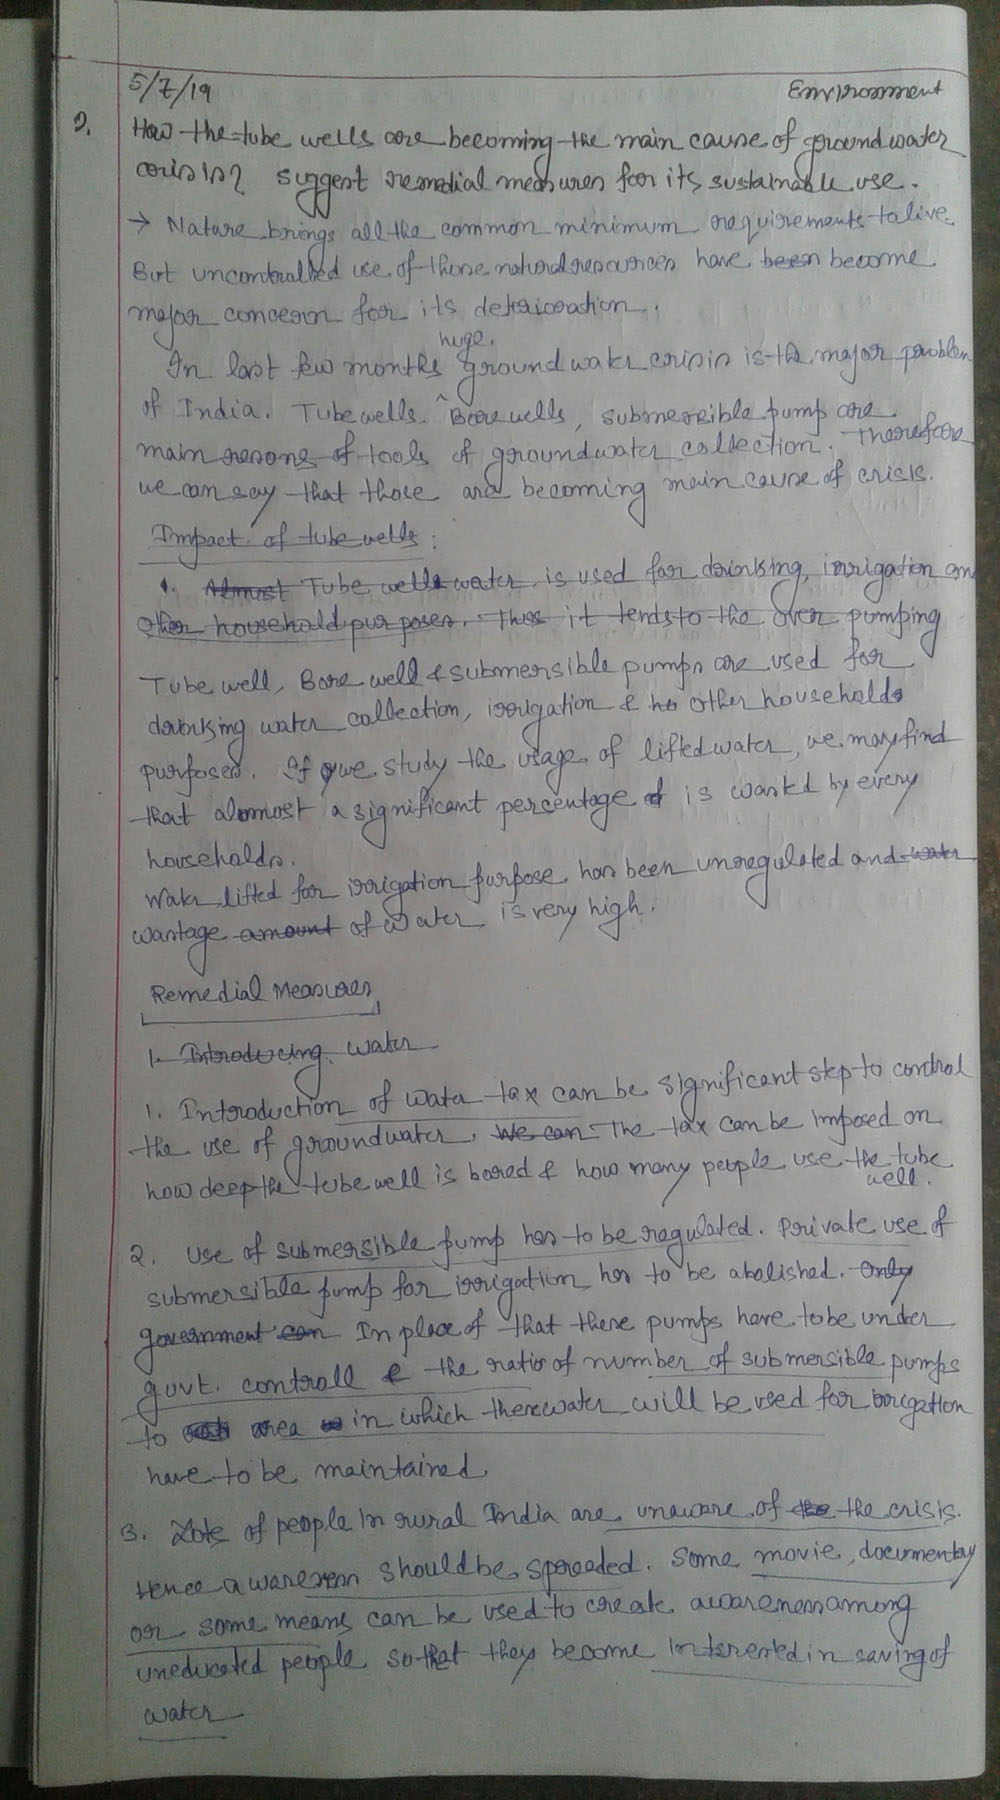 5/7/19 Environment
Q. How the tube wells are becoming the main cause of groundwater
crisis? Suggest remedial measures for its sustainable use.
→ Nature brings all the common minimum requirements to live.
But uncontrolled use of these natural resources have been become
major concern for its deterioration.
huge
In last few months ^ ground water crisis is the major problem
of India. Tube wells, Bore wells, submersible pump are
main resons of tools of groundwater collection. Therefore
we can say that those are becoming main cause of crisis.
Impact of tube wells:
1. Almost Tube wells water is used for drinking, irrigation an
other household purposes. Thus it tends to the over pumping
Tube well, Bore well & submersible pumps are used for
drinking water collection, irrigation & ho other households
purposes. If we study the usage of lifted water, we may find
that alomost a significant percentage of is wasted by every
households.
Water lifted for irrigation purpose has been unregulated and water
wastage amount of water is very high.
Remedial Measures
1. Introducing water
1. Introduction of water tax can be significant step to control
the use of groundwater. We can The tax can be imposed on
how deep the tube well is bored & how many people use the tube
well.
2. Use of submersible pump has to be regulated. Private use of
submersible pump for irrigation has to be abolished. Only
government can In place of that these pumps have to be under
govt. controll & the ratio of number of submersible pumps
to area in which there water will be used for irrigation
have to be maintained.
3. Lots of people in rural India are unaware of the the crisis.
Hence awareness should be spreaded. Some movie, documentary
or some means can be used to create awareness among
uneducated people so that they become interested in saving of
water